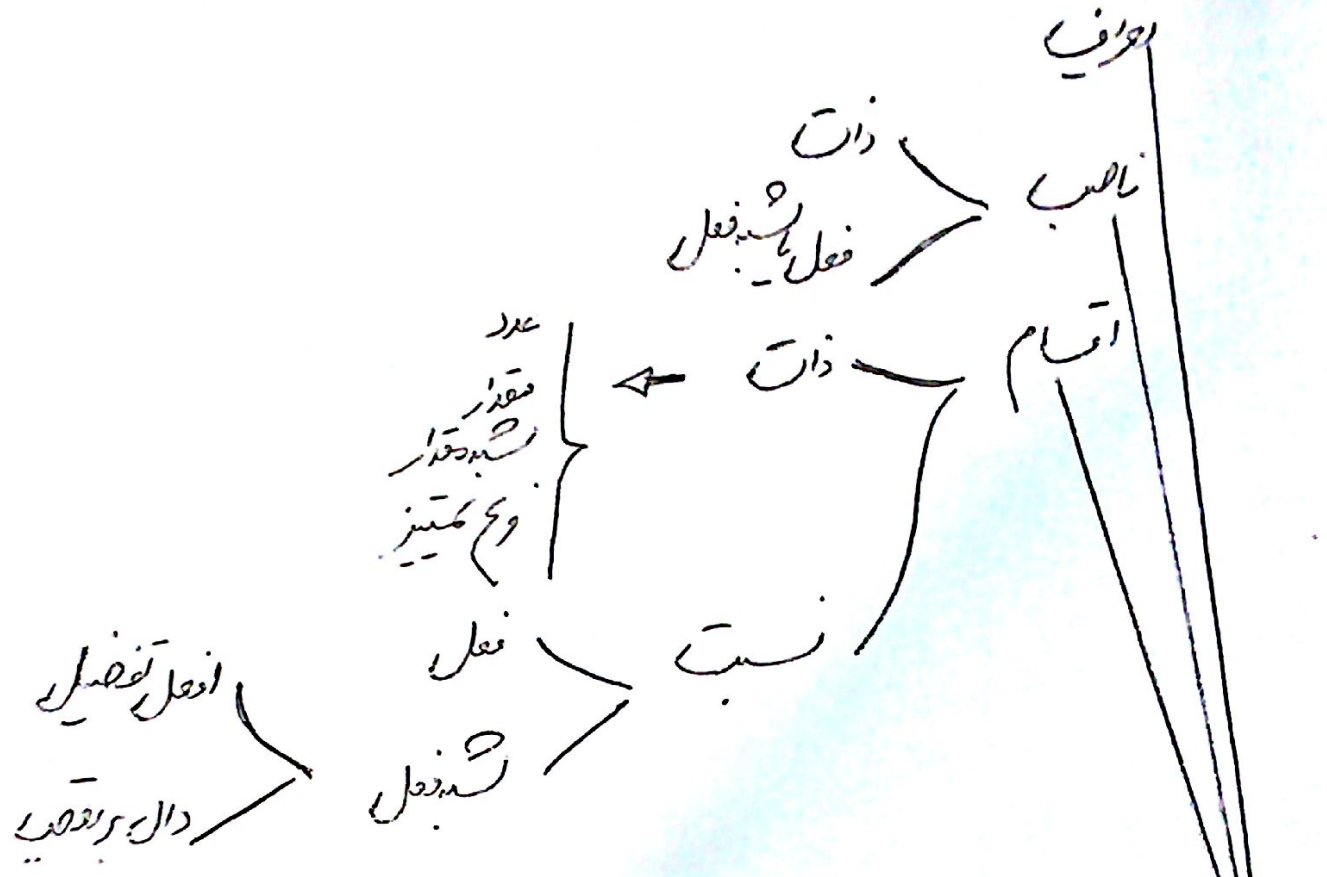 تعریف
ناصب
ذات
فعل یا شبه فعل
اقسام
ذات
عدد
مقدار
شبه مقدار
فرع تمییز
نسبت
فعل
شبه فعل
افعل تفضیل
دال بر تعجب